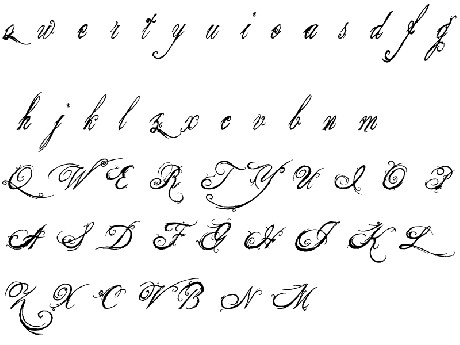 q w e r t y u i o a s d f g
h j k l z x c v b n m
Q W E R T Y U I O P
A S D F G H J K L
Z X C V B N M